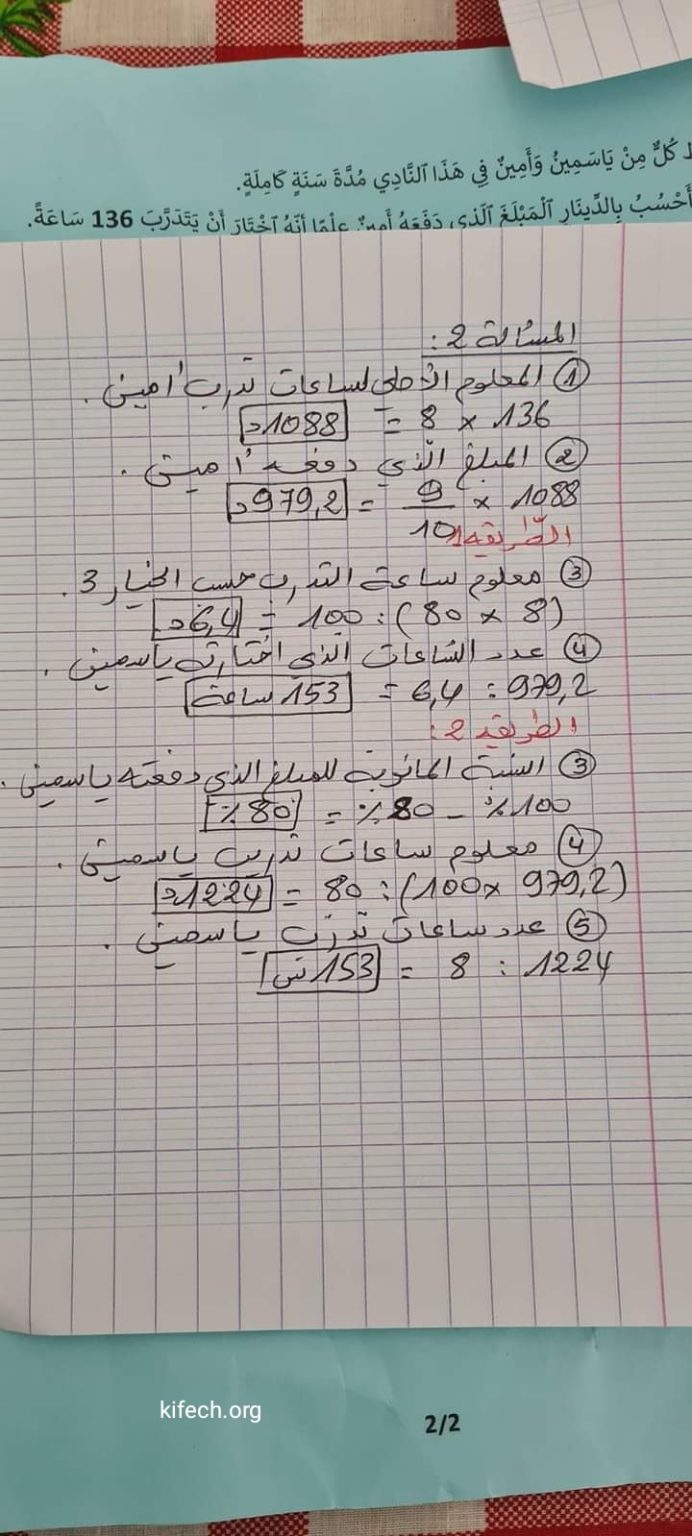 كُلٌّ مِنْ يَاسَمِينُ وَأَمِينٌ فِي هَذَا ٱلنَّادِي مُدَّةَ سَنَةٍ كَامِلَةٍ.
أَحْسُبُ بِالدِّينَارِ ٱلْمَبْلَغَ ٱلَّذِي دَفَعَهُ أَمِينٌ عِلْمًا أَنَّهُ ٱخْتَارَ أَنْ يَتَدَرَّبَ 136 سَاعَةً.
المسألة 2:
① المعلوم الأصلي لساعات تدرب أمين.
136 × 8 = 1088د
② المبلغ الّذي دفعه أمين.
1088 × 9/10 = 979,2د
الطّريقة 1
③ معلوم ساعة التدرب حسب الخيار 3.
(8 × 80) : 100 = 6,4د
④ عدد الساعات الذي اختارته ياسمين.
979,2 : 6,4 = 153 ساعة
الطريقة 2:
③ النسبة المائوية للمبلغ الذي دفعته ياسمين.
100٪ - 80٪ = 80٪
④ معلوم ساعات تدريب ياسمين.
(979,2 × 100) : 80 = 1224د
⑤ عدد ساعات تدرّب ياسمين.
1224 : 8 = 153 س
kifech.org
2/2